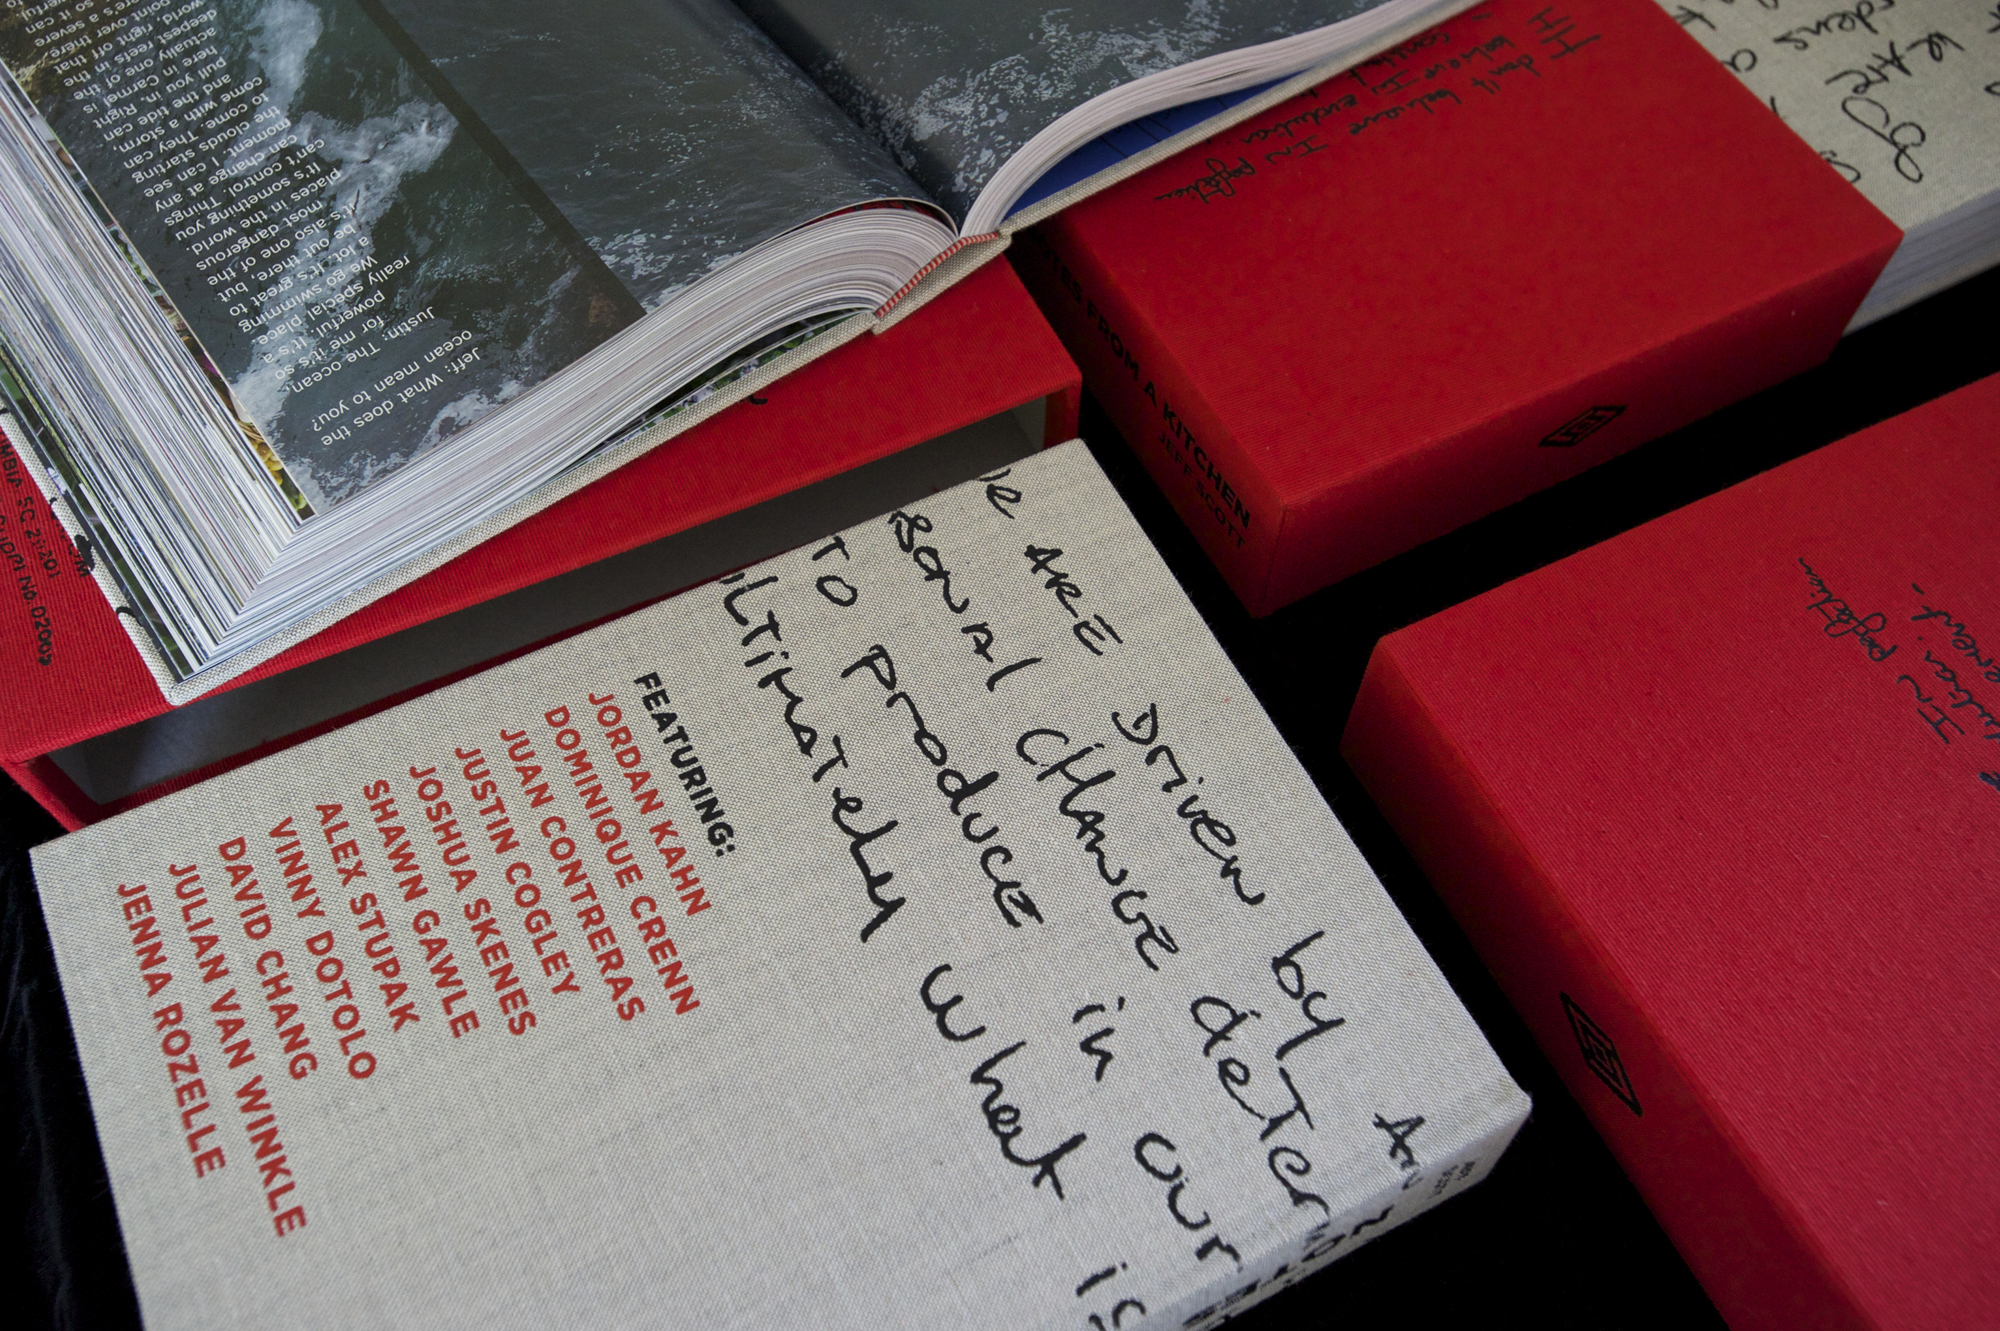 Jeff: What does the
ocean mean to you?
Justin: The ocean,
for me it's so
powerful. It's a
really special place.
We go swimming
a lot. It's great to
be out there, but
it's also one of the
most dangerous
places in the world.
It's something you
can't control. Things
can change at any
moment. I can see
the clouds starting
to come. They can
come with a storm,
and the tide can
pull you in. Right
here in Carmel is
actually one of
deepest reefs in the
world, right off that
point over there.
FROM A KITCHEN
JEFF SCOTT
I don't believe in perfection
believe in evolution
ARE Driven by
CHANGE deter
TO produce in our
ultimately what is
FEATURING:
JORDAN KAHN
DOMINIQUE CRENN
JUAN CONTRERAS
JUSTIN COGLEY
JOSHUA SKENES
SHAWN GAWLE
ALEX STUPAK
VINNY DOTOLO
DAVID CHANG
JULIAN VAN WINKLE
JENNA ROZELLE
NOTES
in perfection